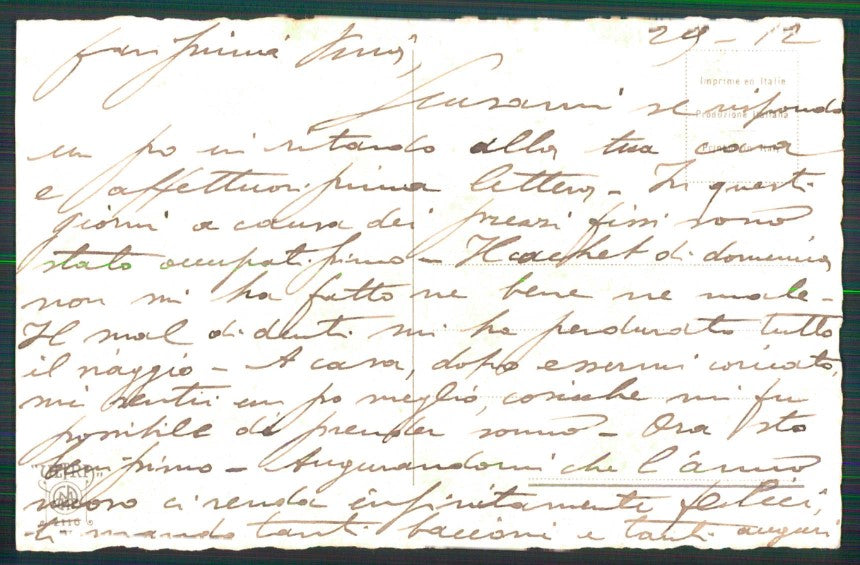 29-12
Imprimé en Italie
Scusami se rispondo
Produzione Italiana
un po in ritardo alla tua cara
e affettuosissima lettera - In questi
giorni a causa dei prezzi fissi sono
stato occupatissimo - Il cachet di domenica
non mi ha fatto ne bene ne male -
Il mal di denti mi ha perdurato tutto
il viaggio - A casa, dopo essermi coricato,
mi sentii un po meglio, cosicche mi fu
possibile di prender sonno - Ora sto
benissimo - Augurandomi che l'anno
nuovo ci renda infinitamente felici,
ti mando tanti baccioni e tanti auguri
2116